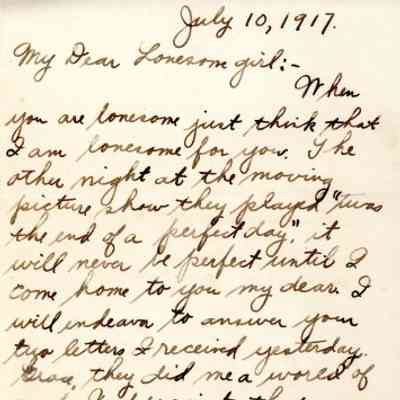 July 10, 1917.
My Dear Lonesome girl:-
When
you are lonesome just think that
I am lonesome for you. The
other night at the moving
picture show they played "twas
the end of a perfect day," it
will never be perfect until I
come home to you my dear. I
will indeavor to answer your
two letters I received yesterday.
they did me a world of